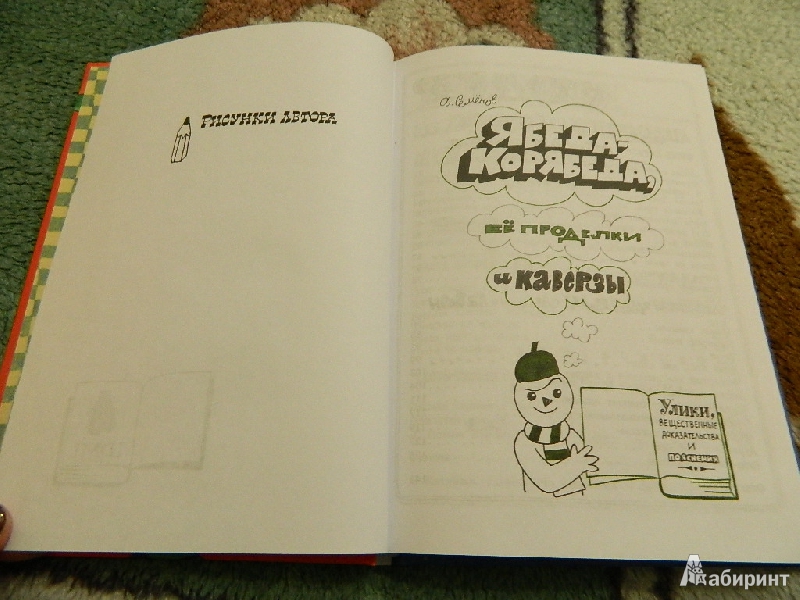 РИСУНКИ АВТОРА
А. Семёнов
ЯБЕДА-
КОРЯБЕДА,
ЕЁ ПРОДЕЛКИ
и КАВЕРЗЫ
Улики,
ВЕЩЕСТВЕННЫЕ
ДОКАЗАТЕЛЬСТВА
И
ПОЯСНЕНИЯ
Лабиринт